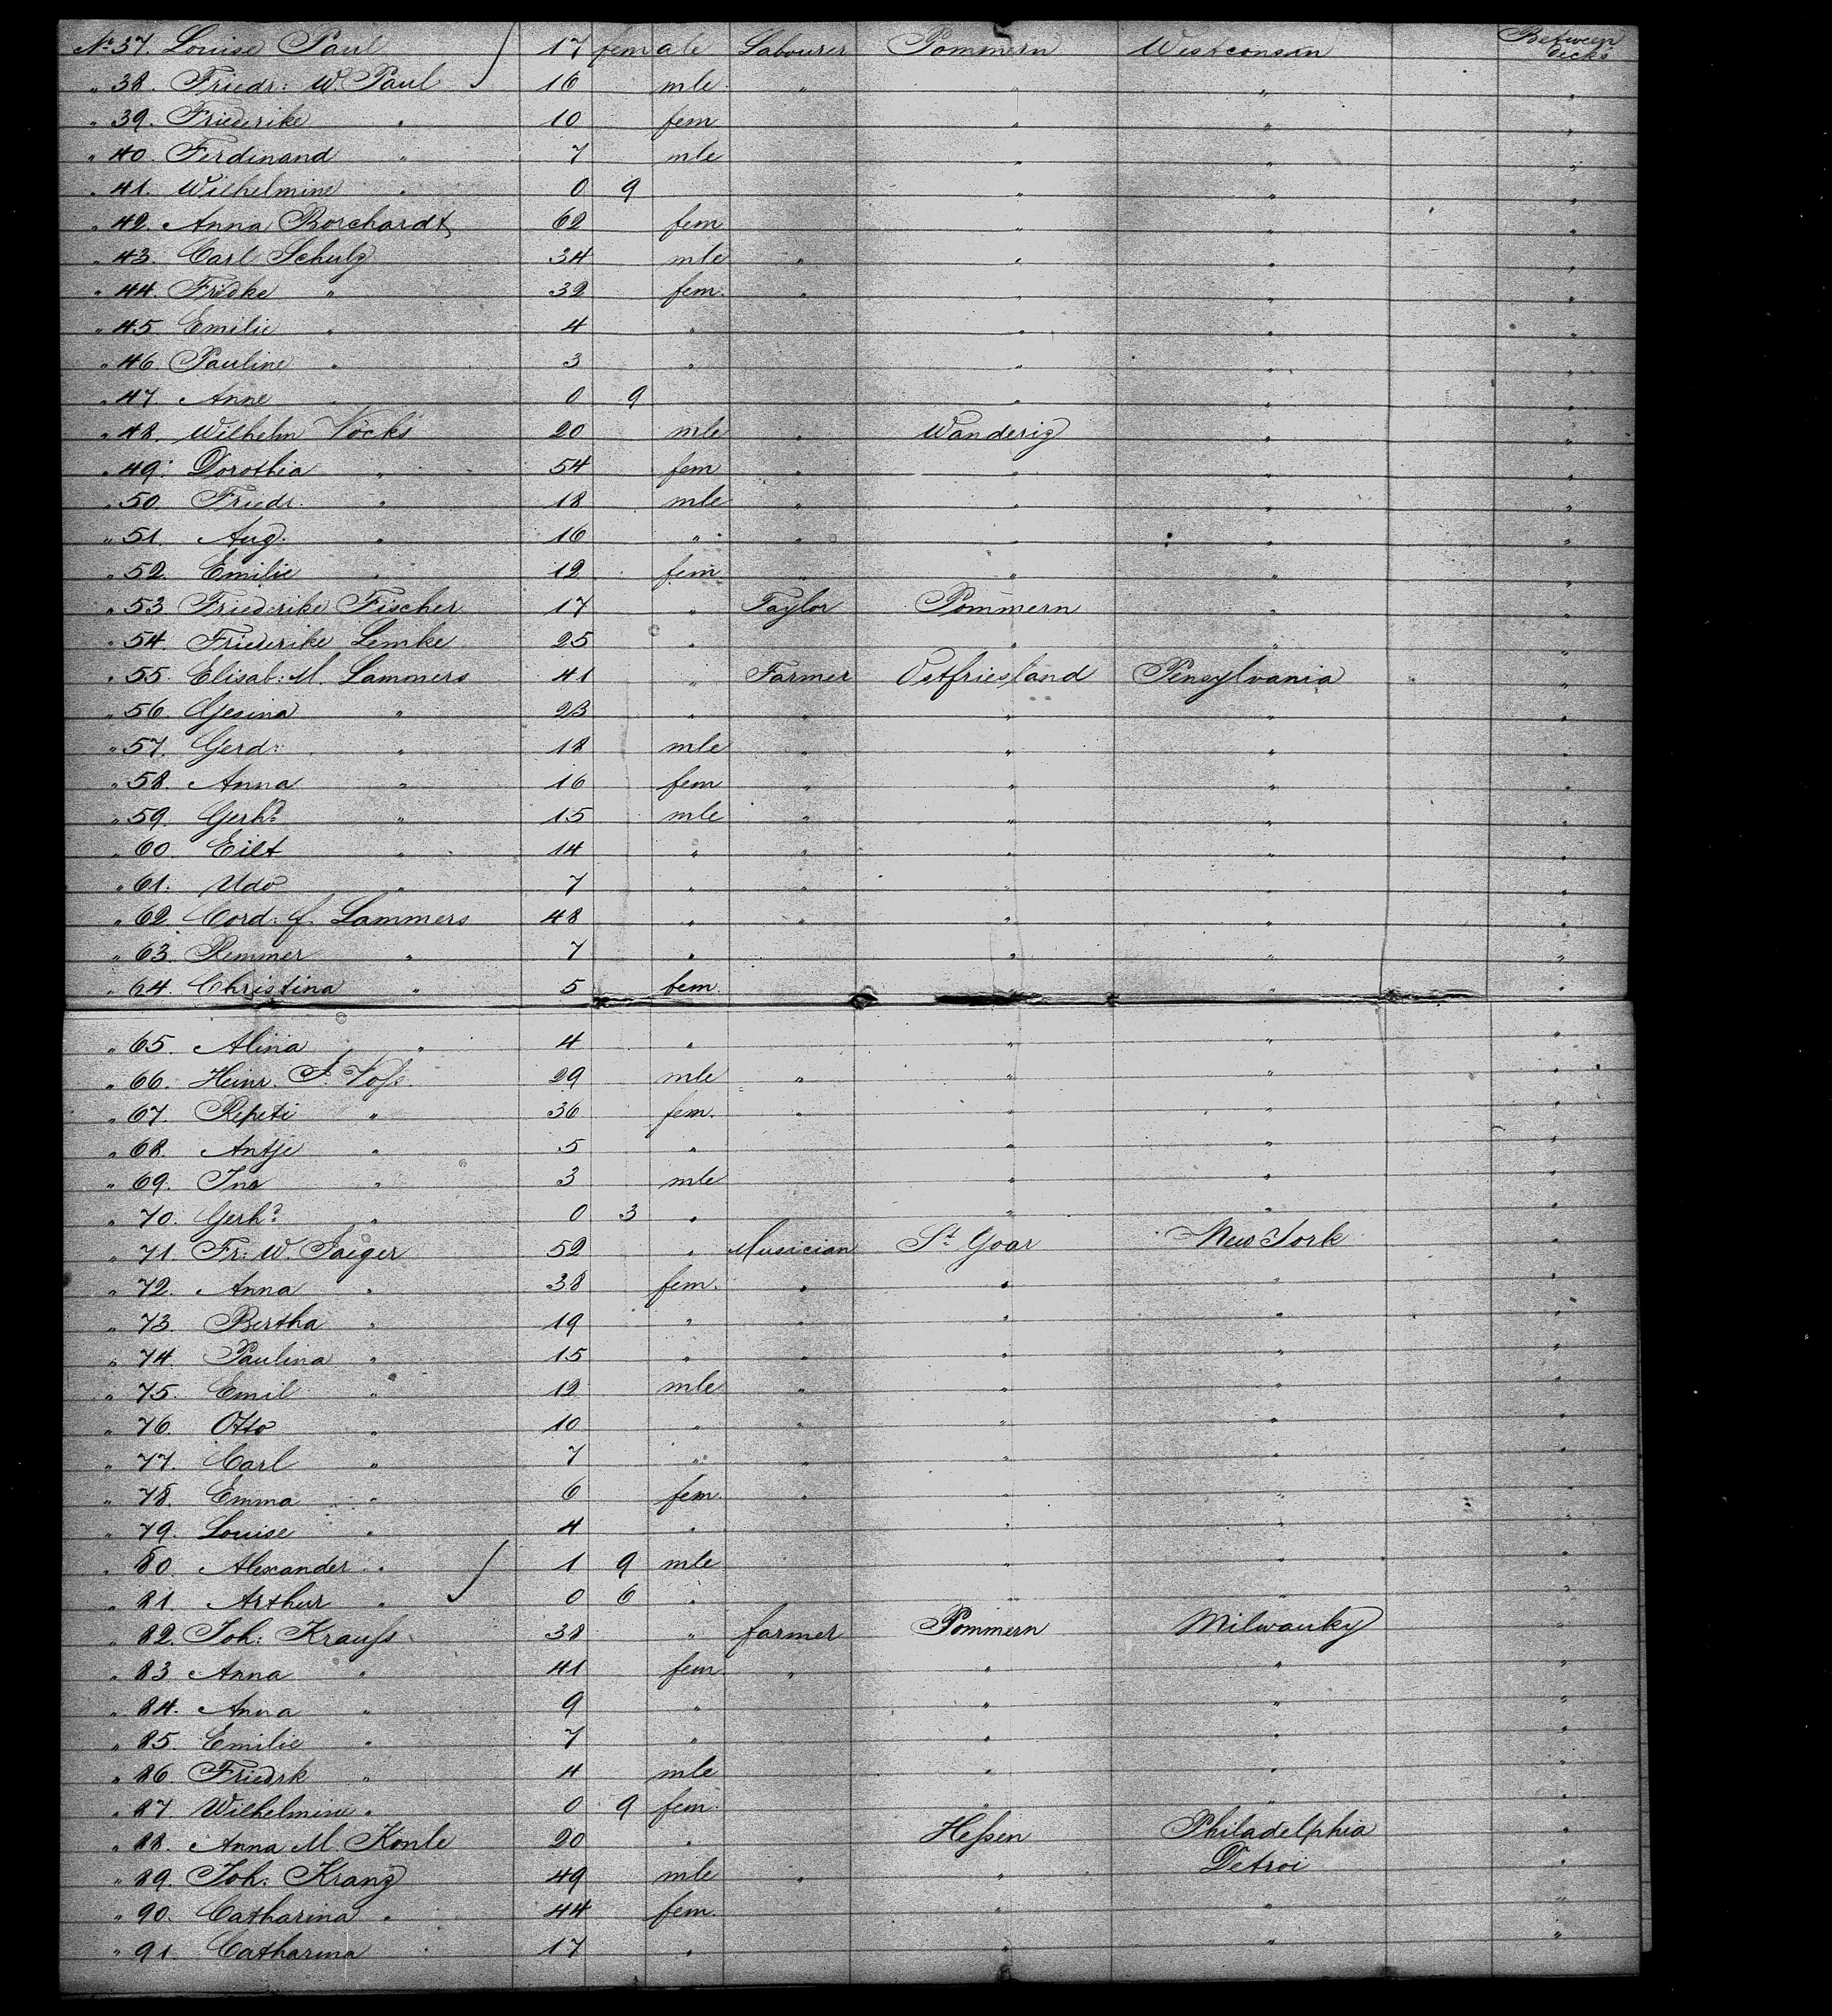 No 37. Louise Paul 17 female Labourer Pommern Westconsin Between decks
" 38. Friedr: W. Paul 16 mle " " " "
" 39. Friederike " 10 fem " " "
" 40. Ferdinand " 7 mle " " "
" 41. Wilhelmine " 0 9 " " "
" 42. Anna Borchardt 62 fem " " "
" 43. Carl Schulz 34 mle " " " "
" 44. Fridke " 32 fem. " " " "
" 45 Emilie " 4 " " " "
" 46. Pauline " 3 " " " "
" 47. Anne " 0 9 " " "
" 48. Wilhelm Vöcks 20 mle " Wanderig " "
" 49. Dorothia " 54 fem " " " "
" 50. Friedr. " 18 mle " " " "
" 51. Aug. " 16 " " " " "
" 52. Emilie " 12 fem " " " "
" 53 Friederike Fischer 17 " Taylor Pommern " "
" 54. Friederike Lemke 25 " " " "
" 55. Elisab: M. Lammers 41 " Farmer Ostfriesland Pensylvania "
" 56. Gesina " 23 " " " " "
" 57. Gerd: " 18 mle " " " "
" 58. Anna " 16 fem " " " "
" 59. Gerhd " 15 mle " " " "
" 60. Eilt " 14 " " " " "
" 61. Udo " 7 " " " " "
" 62. Cord: f. Lammers 48 " " " " "
" 63. Remmer " 7 " " " "
" 64. Christina " 5 fem "  "
" 65. Alina " 4 " " " "
" 66. Heinr. J. Voſs. 29 mle " " " "
" 67. " 36 fem. " " " "
" 68. Antje " 5 " " " "
" 69. Ino " 3 mle " " "
" 70. Gerhd " 0 3 " " " "
" 71. Fr: W. Jaeger 52 " Musician St Goar New York "
" 72. Anna " 38 fem. " " " "
" 73. Bertha " 19 " " " " "
" 74. Paulina " 15 " " " " "
" 75. Emil " 12 mle " " " "
" 76. Otto " 10 " " " " "
" 77. Carl " 7 " " " " "
" 78. Emma " 6 fem. " " " "
" 79. Louise " 4 " " " "
" 80. Alexander " 1 9 mle " " "
" 81. Arthur " 0 6 " " "
" 82. Joh: Krauſs 38 " farmer Pommern Milwauky "
" 83 Anna " 41 fem " " " "
" 84. Anna " 9 " " " "
" 85. Emilie " 7 " " " "
" 86. Friedrk " 4 mle " " "
" 87. Wilhelmine " 0 9 fem. " " "
" 88. Anna M. Konle 20 " Heſsen Philadelphia "
" 89. Joh: Kranz 49 mle " " Detroi "
" 90. Catharina " 44 fem. " " "
" 91. Catharina " 17 " " " "